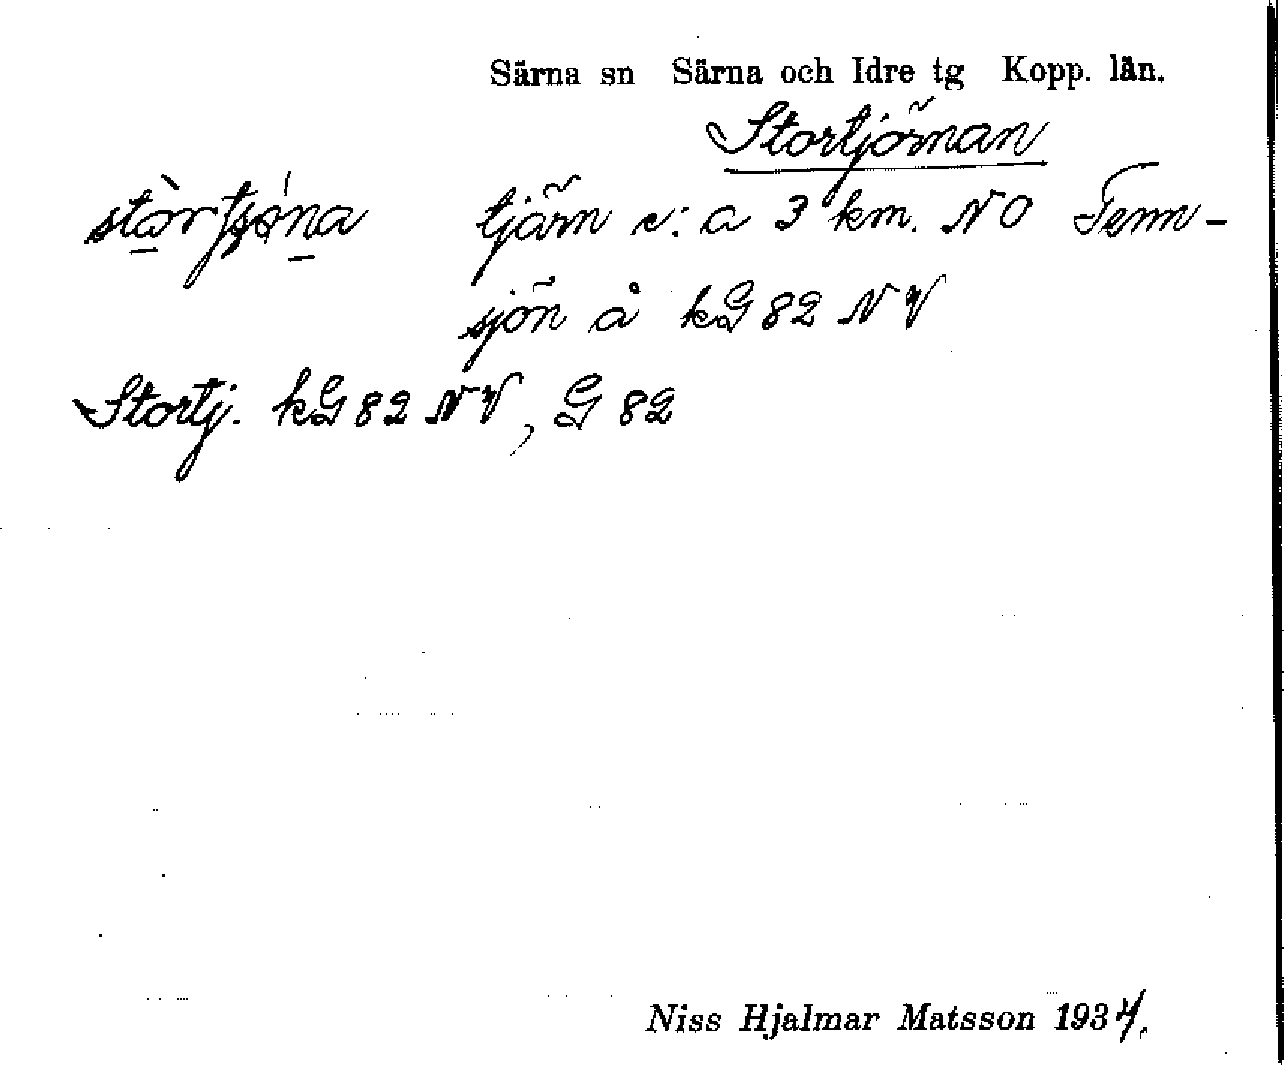 Särna sn Särna och Idre tg Kopp. län.
Stortjörnan
tjärn c:a 3 km. NO Tenn-
sjön å kG 82 NV
Stortj. kG 82 NV, G 82
Niss Hjalmar Matsson 1934.